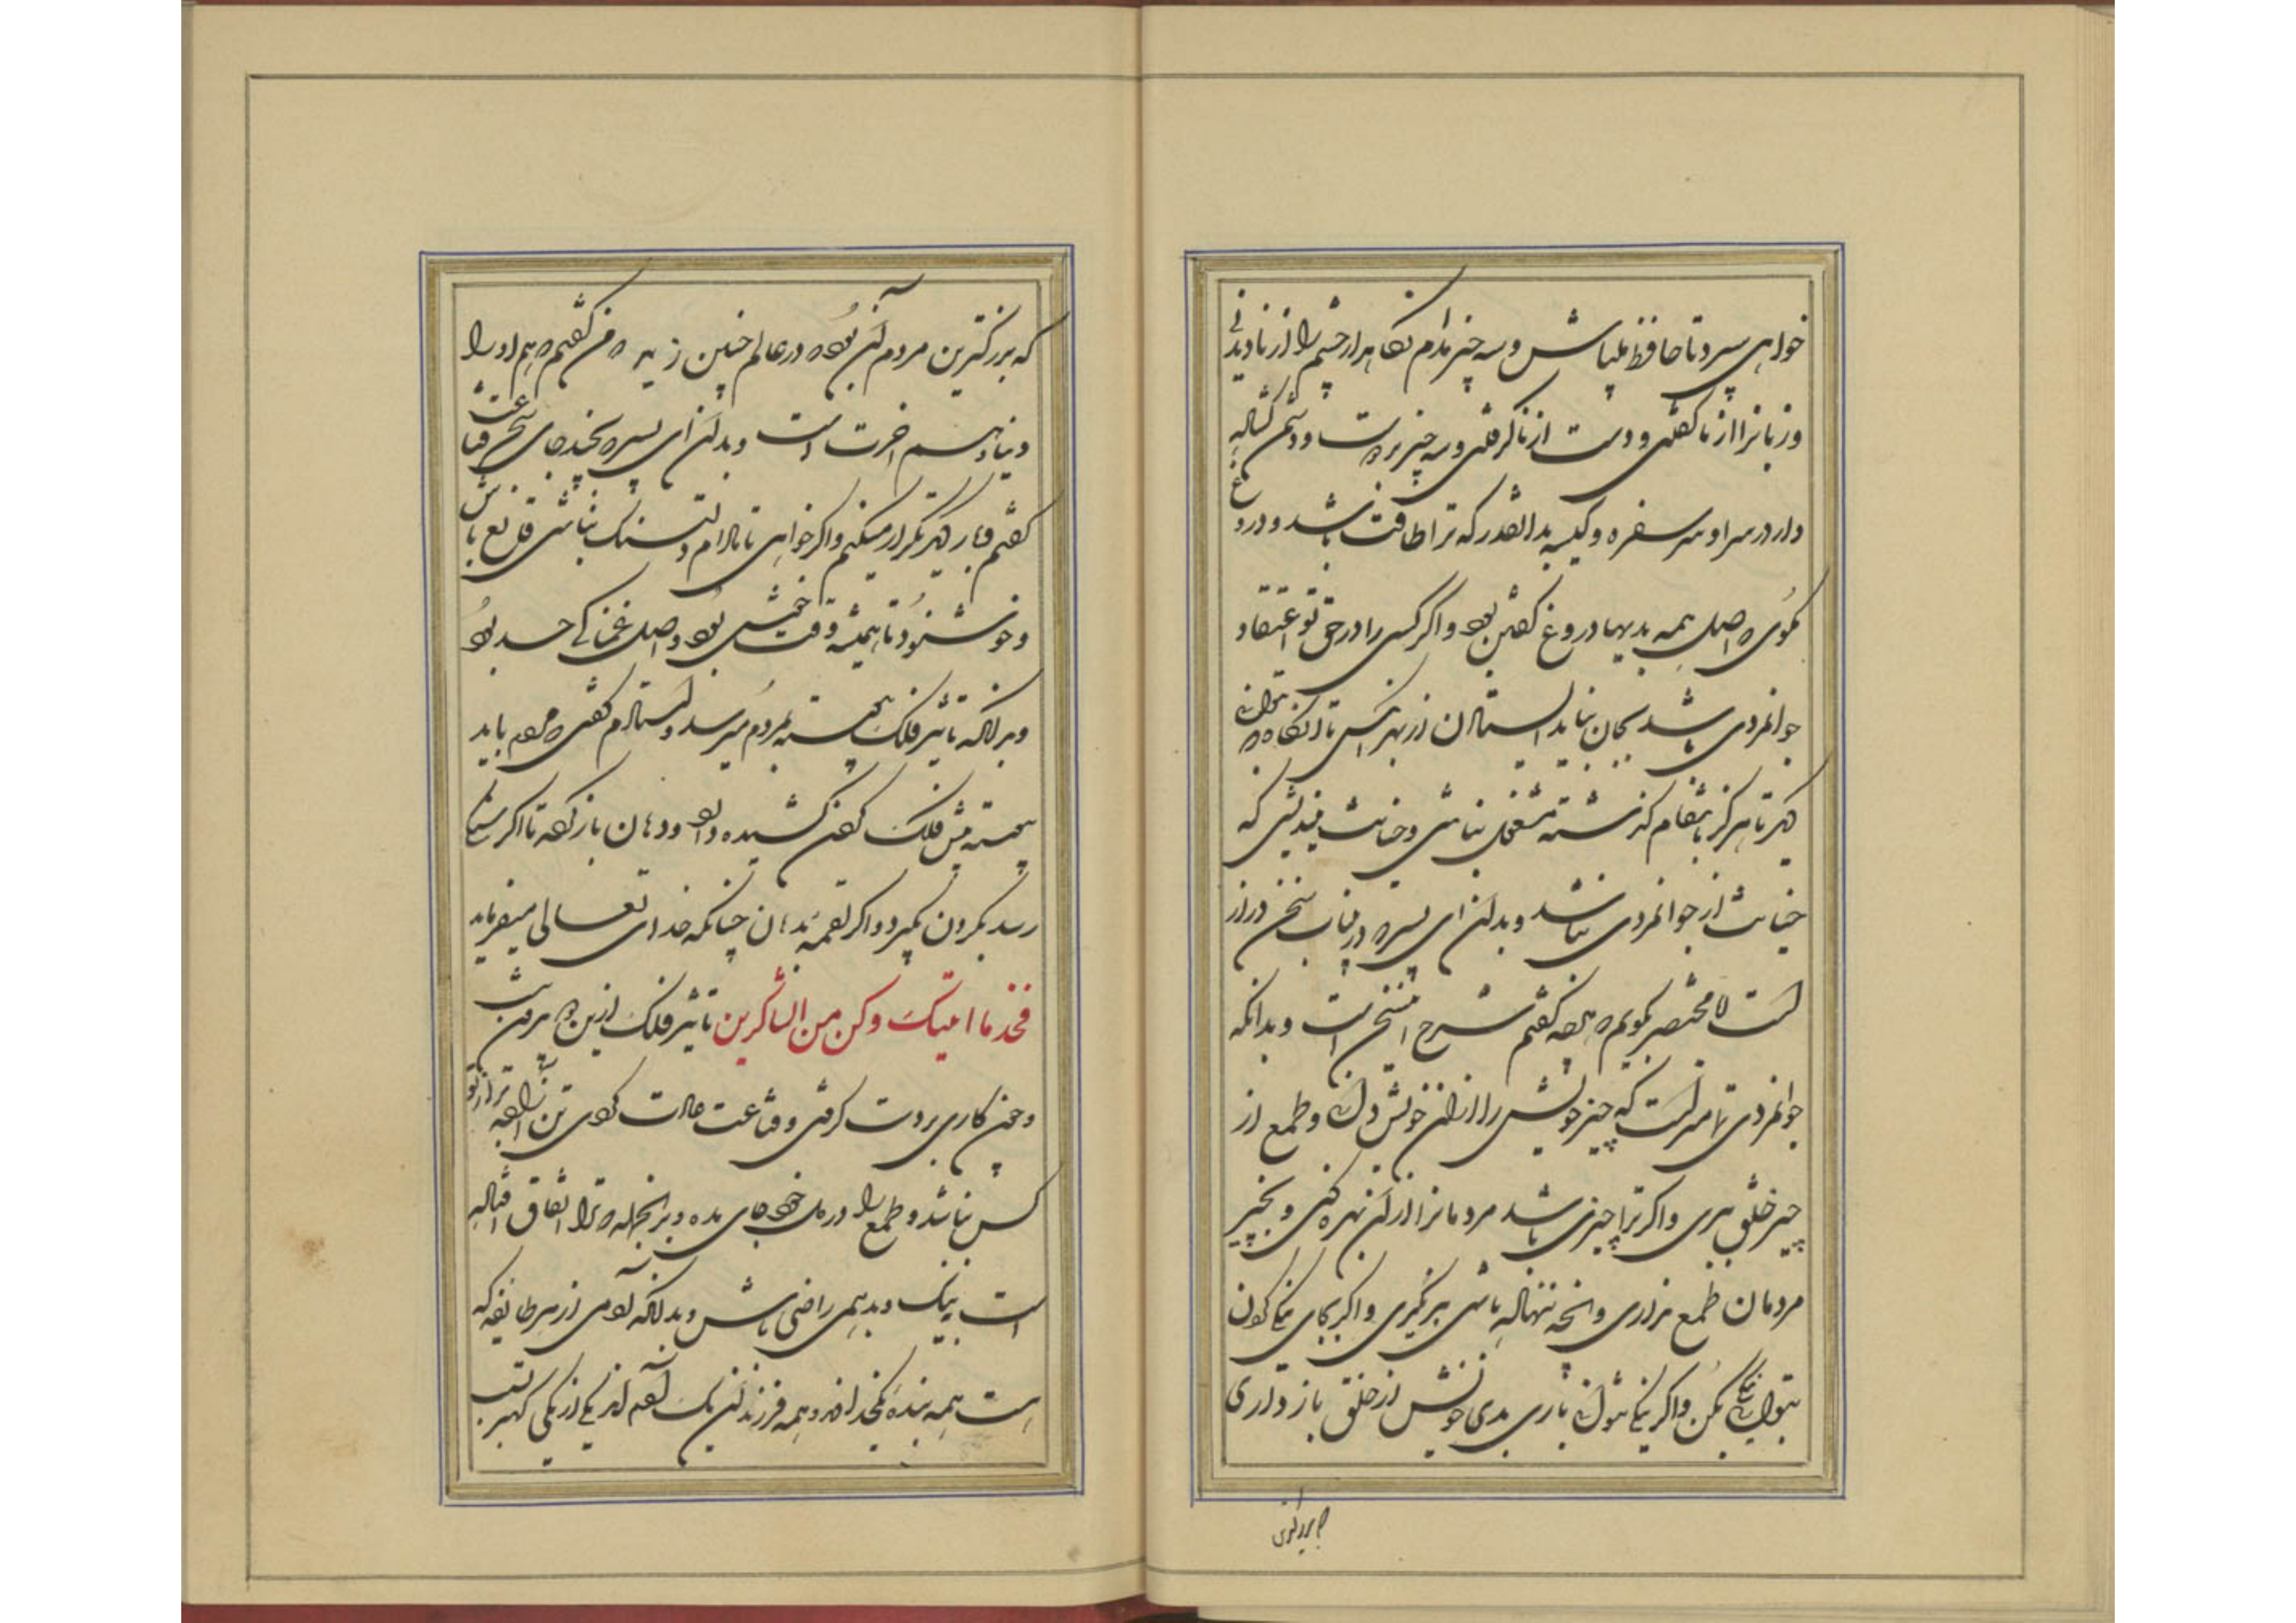 خواهی سپرد تا حافظ پلپاش و سه چیز مدام نگاهدار چشم را از نادیدنی
و زبانرا از ناگفتنی و دست از ناگرفتنی و سه چیز بر دوست و دشمن گشاده
دار در سرا و سر سفره و کیسه بدانقدر که ترا طاقت باشد و دروغ
مگوی که اصل همه بدیها دروغ گفتن بود و اگر کسی را در حق تو اعتقاد
جوانمردی باشد بجان نباید استادن از بهر آنکس تا آنگاه که توانی
تا هرگز بانتقام گذشته مشغول نباشی و خیانت نیندیشی که
خیانت از جوانمردی نباشد و بدان ای پسر که درین باب سخن دراز
است اما مختصر بگویم که آنچه گفتم شرح این سخن است و بدانکه
جوانمردی تمامتر آنست که چیز خویش را از آن خویش دانی و طمع از
چیز خلق ببری و اگر ترا چیزی باشد مردمانرا از آن بهره کنی و بچیز
مردمان طمع نداری و آنچه ننهاده باشی برنگیری و اگر بجای نیکوئی
بتوانی نیکی بکن و اگر نیکی نتوانی باری بدی خویش از خلق باز داری
که بزرگترین
که بزرگترین مردم آن بود که در عالم چنین زید که من گفتم که هم او را
دنیا و هم آخرت است و بدان ای پسر که بچند جای سخن قناعت
گفتم بار دیگر تکرار میکنم و اگر خواهی تا مادام دلتنگ نباشی قانع باش
و حسود نشو تا همیشه وقت خوش بود و اصل غمناکی حسد بود
و بدانکه تأثیر فلک پیوسته بمردم میرسد و استادم گفتی که مردم باید
پیوسته پیش فلک گردن کشیده دارد و دهان باز کرده تا اگر
رسد بگردن بگیرد و اگر لقمه بدهان چنانکه خدای تعالی میفرماید
فخذ ما اتیتک و کن من الشاکرین تاثیر فلک ازین دو بیرون نیست
و چون کاری بر دست گرفتی و قناعت عادت کردی تن آزاده تر از تو
کس نباشد و طمع را در دل خود جای مده و بر آنجمله که ترا اتفاق افتاده
است بنیک و بد همی راضی باش و بدانکه آدمی از هر طایفه که
هست همه بنده یک خدااند و همه فرزندان یک آدم اند یکی از یکی کمتر بسبب